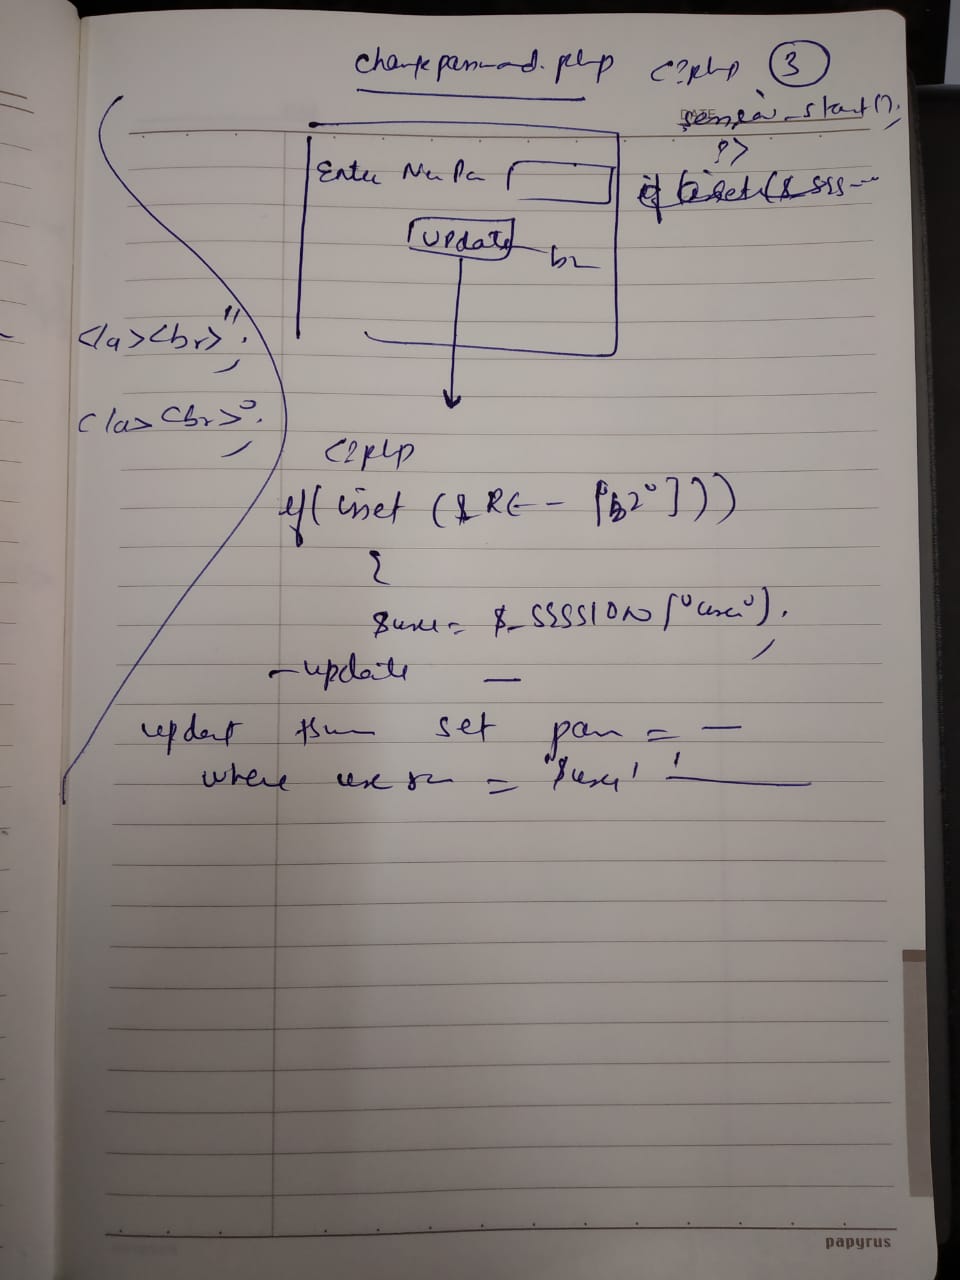 changepassword.php
<?php
3
session_start();
?>
if (isset($_SSS--
Enter New Pa
Update
b2
</a><br>";
</a><br>";
<?php
if( isset ($RE-- ["b2"]))
{
$use= $_SSSSION["use"];
-update —
update set pass = —
where use = '$use'
papyrus